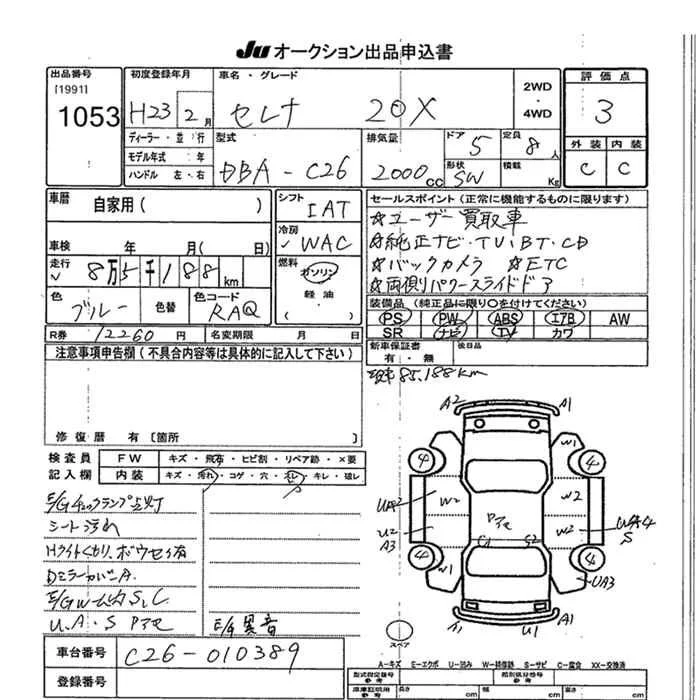 JU オークション出品申込書
出品番号
[1991]
1053
初度登録年月
H23 2 月
車名・グレード
セレナ 20X
2WD
・
4WD
評価点
3
ディーラー・並行
モデル年式 年
ハンドル 左・右
型式
DBA-C26
排気量
2000 cc
ドア
5
形状
SW
定員
8 人
積載
Kg
外装 内装
C C
車歴
自家用( )
車検 年 月( 日)
走行
8万5千188 km
色
ブルー
色替
色コード
RAQ
シフト
IAT
冷房
WAC
燃料
ガソリン
軽油
( )
セールスポイント(正常に機能するものに限ります)
☆ユーザー買取車
☆純正ナビ・TV・BT・CD
☆バックカメラ ☆ETC
☆両側パワースライドドア
装備品(純正品に限り○を付けてください)
PS PW ABS エアB AW
SR ナビ TV カワ
R券 12260 円
名変期限 月 日
新車保証書
有・無
後日品
注意事項申告欄(不具合内容等は具体的に記入して下さい)
85,188km
修復歴 有〔箇所 〕
検査員
記入欄
FW キズ・飛石・ヒビ割・リペア跡・×要
内装 キズ・汚れ・コゲ・穴・スレ・キレ・破レ
E/Gチェックランプ点灯
シート汚れ
Hライトくもり、ボウセイ有
DミラーカバーA
U.A.S Pアセ
E/G異音
A2 A1
4 4
W1
UA2 W2 W2
U2
A3
Pアセ
W2 UA4
S
4 4
W1 UA3
U1 A1
スペア
A-キズ E-エクボ U-凹み W-補修跡 S-サビ C-腐食 XX-交換済
車台番号
C26-010389
登録番号
型式指定番号
参考
類別区分番号
参考
車庫証明用
参考
長さ cm
幅 cm
高さ cm